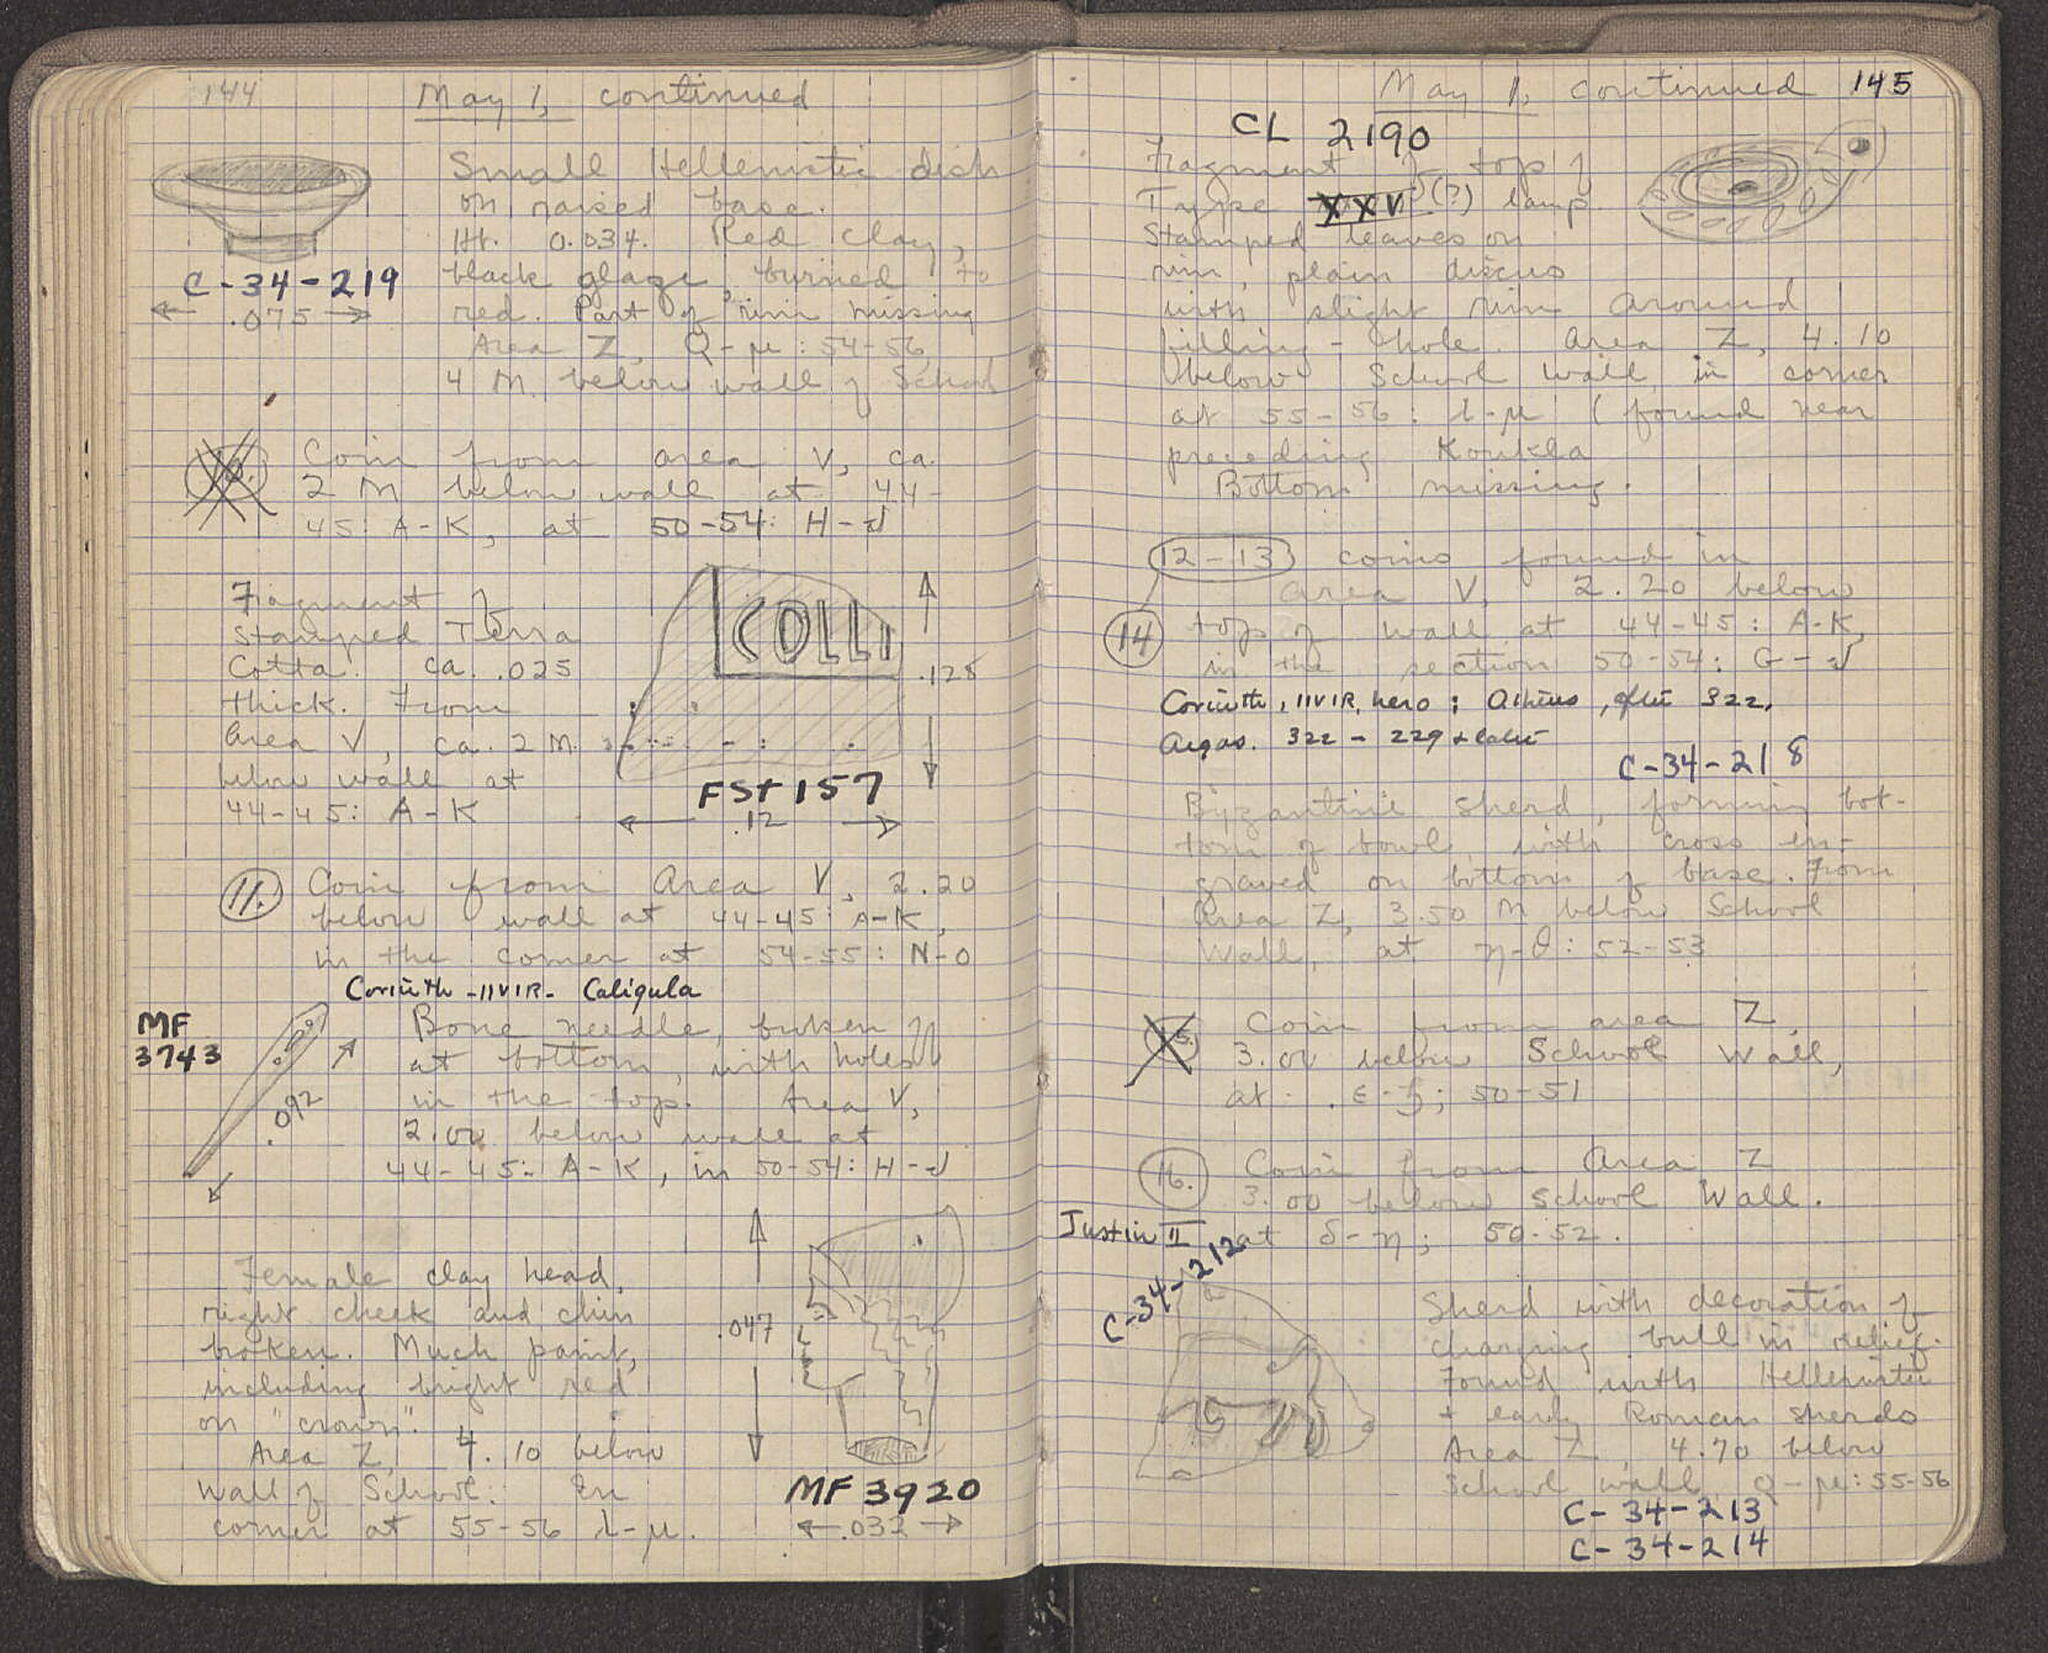 144
May 1, continued
Small Hellenistic dish
on raised base.
Ht. 0.034. Red clay,
black glaze, burned to
red. Part of rim missing
Area Z, Q-μ: 54-56,
4 M. below wall of School
C-34-219
.075
10.
Coin from area V, ca.
2 M below wall at 44-
45: A-K, at 50-54: H-
Fragment of
stamped Terra
Cotta. ca. .025
thick. From
Area V, ca. 2 M.
below wall at
44-45: A-K
COLLI
.128
FST 157
.12
11.
Coin from Area V, 2.20
below wall at 44-45: A-K,
in the corner at 54-55: N-O
Corinth - IIVIR - Caligula
MF
3743
.092
Bone needle, broken off
at bottom, with holes
in the top. Area V,
2.00 below wall at
44-45: A-K, in 50-54: H-
Female clay head,
right cheek and chin
broken. Much paint,
including bright red
on "crown".
Area Z, 4.10 below
Wall of School. In
corner at 55-56 λ-μ.
.047
MF 3920
.032
May 1, continued 145
CL 2190
Fragment of top of
Type XXV (?) lamp
Stamped leaves on
rim, plain discus
with slight rim around
filling-hole. Area Z, 4.10
below School wall in corner
at 55-56: λ-μ (found near
preceding Koukla
Bottom missing.
12-13 coins found in
area V, 2.20 below
14 top of wall at 44-45: A-K,
in the section 50-54: G-
Corinth, IIVIR, hero; Athens, after 322,
Argos. 322 - 229 + later
C-34-218
Byzantine sherd, forming bot-
tom of bowl, with cross en-
graved on bottom of base. From
Area Z, 3.50 M below School
Wall, at η-θ: 52-53
15.
Coin from area Z,
3.00 below School Wall,
at ε-ζ; 50-51
16.
Coin from Area Z
3.00 below School Wall.
Justin II at δ-η; 50-52.
C-34-212
Sherd with decoration of
charging bull in relief.
Found with Hellenistic
+ early Roman sherds
Area Z 4.70 below
School wall Q-μ: 55-56
C-34-213
C-34-214